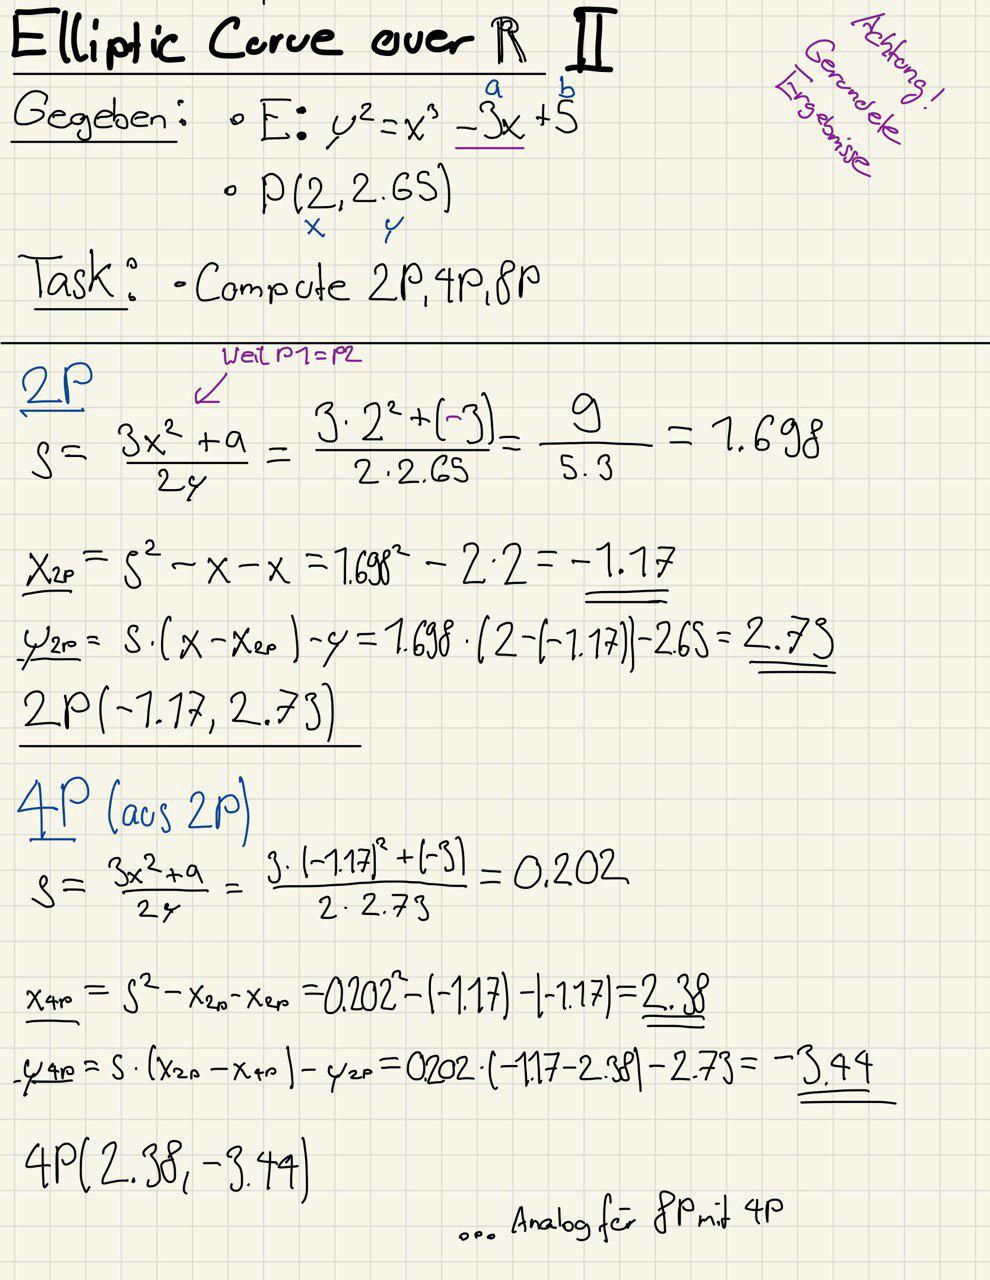 Elliptic Curve over ℝ II
Achtung!
Gerundete
Ergebnisse
a b
Gegeben: • E: y² = x³ - 3x + 5
• P(2, 2.65)
x y
Task: • Compute 2P, 4P, 8P
Weil P1 = P2
2P
s = (3x² + a)/(2y) = (3·2² + (-3))/(2·2.65) = 9/5.3 = 1.698
x₂ₚ = s² - x - x = 1.698² - 2·2 = -1.17
y₂ₚ = s·(x - x₂ₚ) - y = 1.698·(2-(-1.17)) - 2.65 = 2.73
2P(-1.17, 2.73)
4P (aus 2P)
s = (3x² + a)/(2y) = (3·(-1.17)² + (-3))/(2·2.73) = 0.202
x₄ₚ = s² - x₂ₚ - x₂ₚ = 0.202² - (-1.17) - (-1.17) = 2.38
y₄ₚ = s·(x₂ₚ - x₄ₚ) - y₂ₚ = 0.202·(-1.17 - 2.38) - 2.73 = -3.44
4P(2.38, -3.44)
... Analog für 8P mit 4P